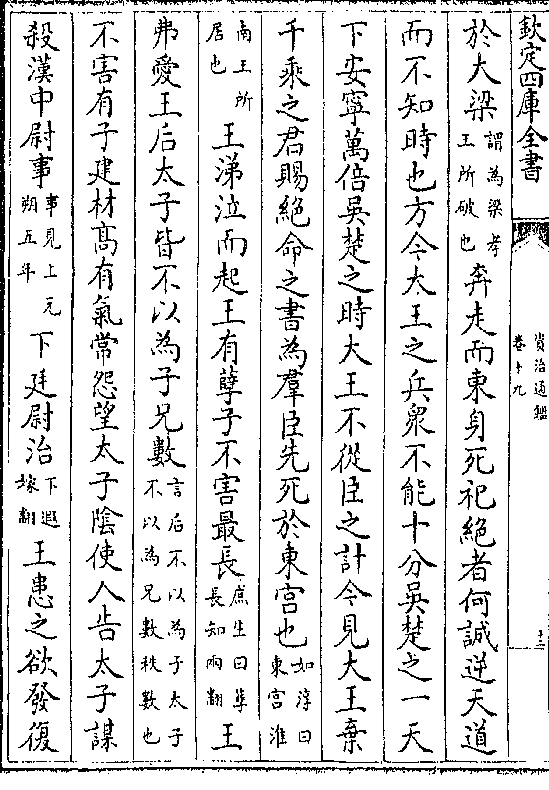 欽定四庫全書
資治通鑑
卷十九
於大梁謂為梁孝王所破也奔走而東身死祀絶者何誠逆天道
而不知時也方今大王之兵衆不能十分吳楚之一天
下安寧萬倍吳楚之時大王不從臣之計今見大王棄
千乘之君賜絶命之書為羣臣先死於東宫也如淳曰東宫淮
南王所居也王涕泣而起王有孽子不害最長庶生曰孽長知兩翻王
弗愛王后太子皆不以為子兄數言后不以為子太子不以為兄數秩數也
不害有子建材髙有氣常怨望太子隂使人告太子謀
殺漢中尉事事見上元朔五年下廷尉治下遐嫁翻王患之欲發復